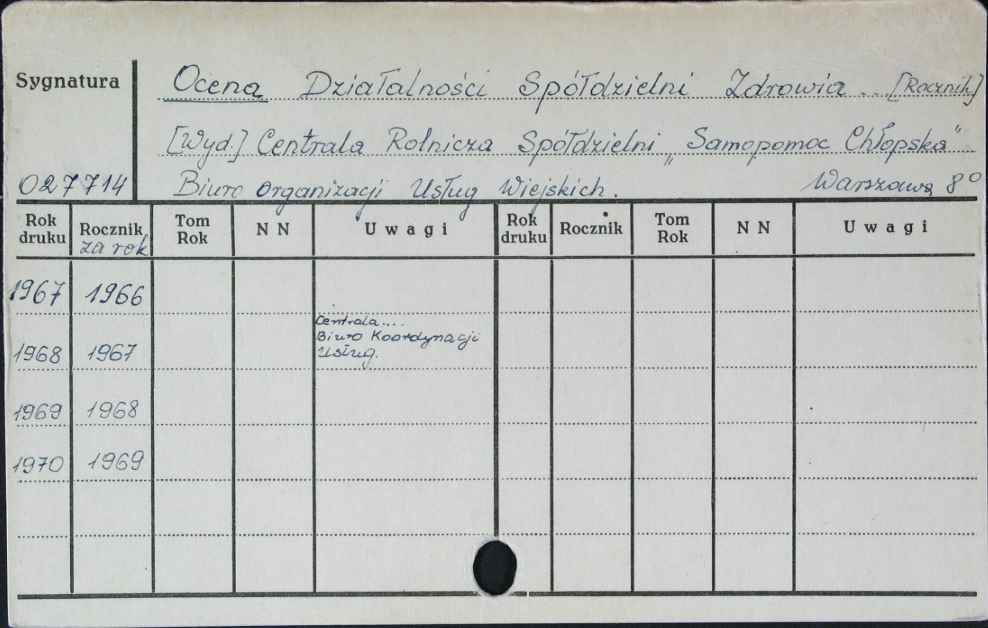 Sygnatura
Ocena Działalności Spółdzielni Zdrowia. [Rocznik]
[Wyd.] Centrala Rolnicza Spółdzielni „Samopomoc Chłopska"
027714 Biuro Organizacji Usług Wiejskich. Warszawa 8°
Rok druku Rocznik za rok Tom Rok N N Uwagi Rok druku Rocznik Tom Rok N N Uwagi
1967 1966
1968 1967 Centrala....
Biuro Koordynacji
Usług.
1969 1968
1970 1969